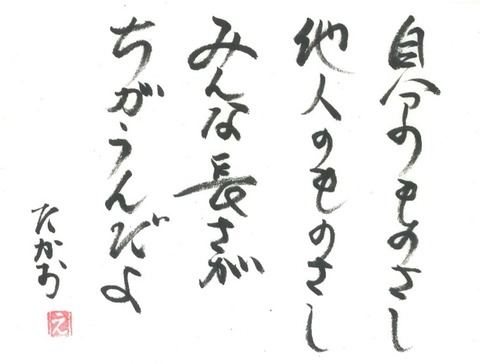 自分のものさし
他人のものさし
みんな長さが
ちがうんだよ
たかお
え